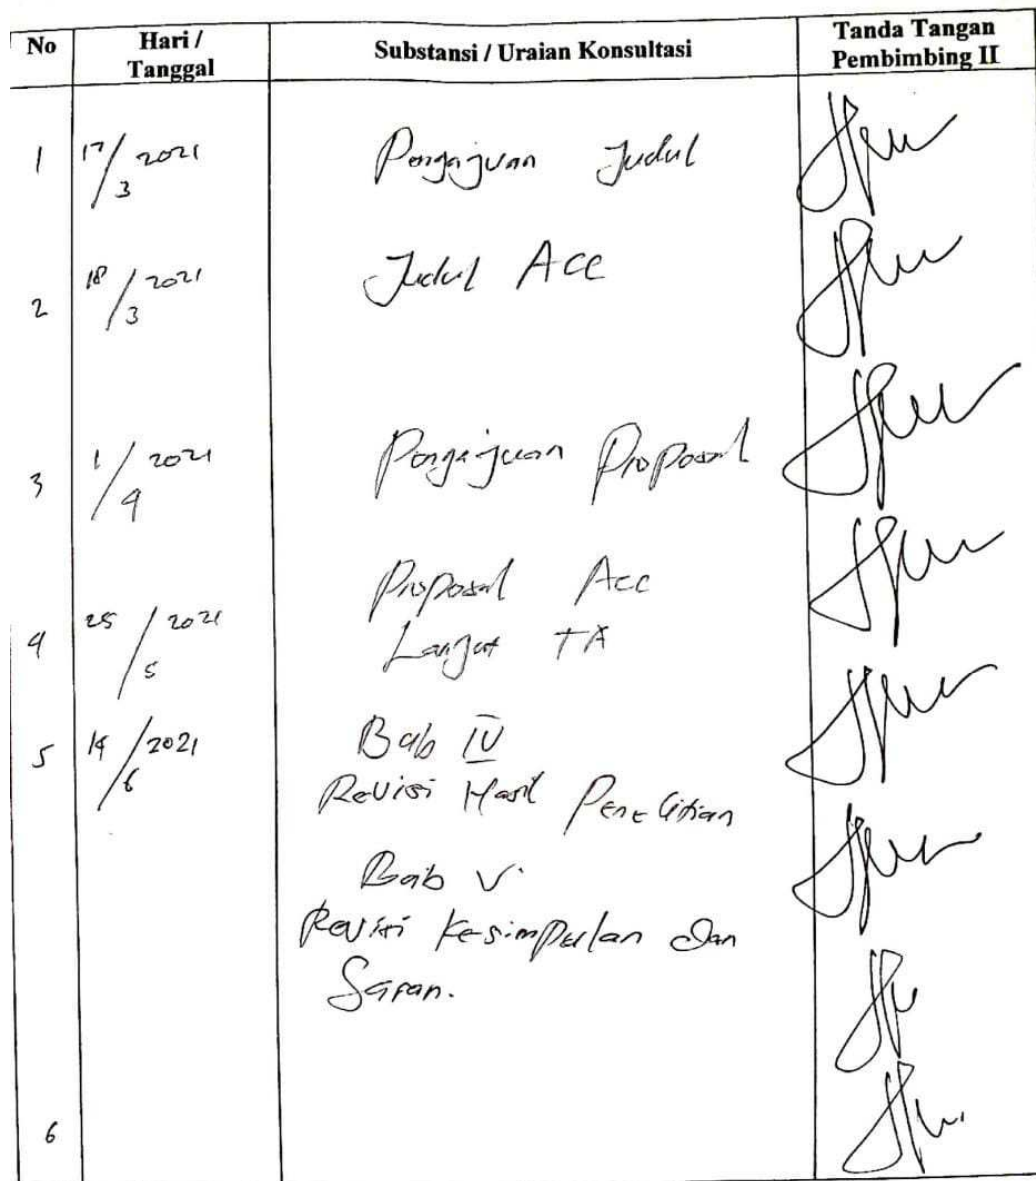 No Hari / Tanggal Substansi / Uraian Konsultasi Tanda Tangan Pembimbing II
1 17/3 2021 Pengajuan Judul
2 18/3 2021 Judul Acc
3 1/4 2021 Pengajuan Proposal
4 25/5 2021 Proposal Acc
Lanjut TA
5 14/6 2021 Bab IV
Revisi Hasil Penelitian
Bab V.
Revisi Kesimpulan dan
Saran.
6